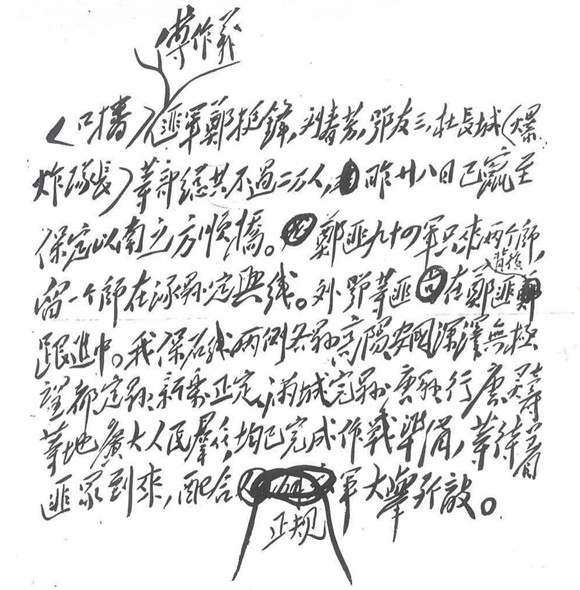 傅作義
(口播)匪軍鄭挺鋒,刘春芳,鄂友三,杜長城(爆
炸隊長)等部總共不過二万人,昨廿八日已竄至
保定以南之方順橋。鄭匪九十四軍只來兩个師,
留一个師在涿县定興线。刘鄂等匪在鄭匪背後
跟進中。我保石线两側各县高陽安國深澤無極
望都定县新乐正定,满城完县唐县行唐灵寿
等地廣大人民羣众,均已完成作戰準備,等待着
匪眾到來,配合正规軍大舉歼敵。